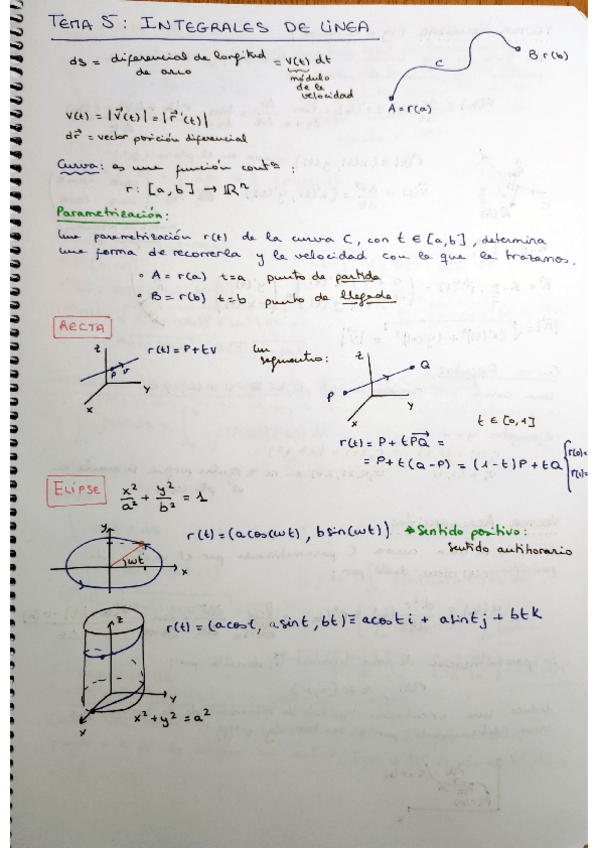 TEMA 5: INTEGRALES DE LINEA
ds = diferencial de longitud de arco = v(t) dt
módulo de la velocidad
C
A = r(a)
B, r(b)
v(t) = |v⃗(t)| = |r⃗'(t)|
dr⃗ = vector posición diferencial
Curva: es una función contª :
r : [a,b] → ℝⁿ
Parametrización:
Una parametrización r(t) de la curva C, con t ∈ [a,b], determina
una forma de recorrerla y la velocidad con la que la trazamos.
◦ A = r(a) t=a punto de partida
◦ B = r(b) t=b punto de llegada.
RECTA
z
P
v
y
x
r(t) = P + tv
Un segmento:
z
P
Q
y
x
t ∈ [0,1]
r(t) = P + tPQ⃗ =
= P + t(Q-P) = (1-t)P + tQ
r(0)=
r(1)=
ELIPSE
x²/a² + y²/b² = 1
y
wt
x
r(t) = (a cos(wt), b sin(wt))
* Sentido positivo:
sentido antihorario
z
y
x
x² + y² = a²
r(t) = (a cos t, a sin t, bt) = a cos t i + a sin t j + bt k